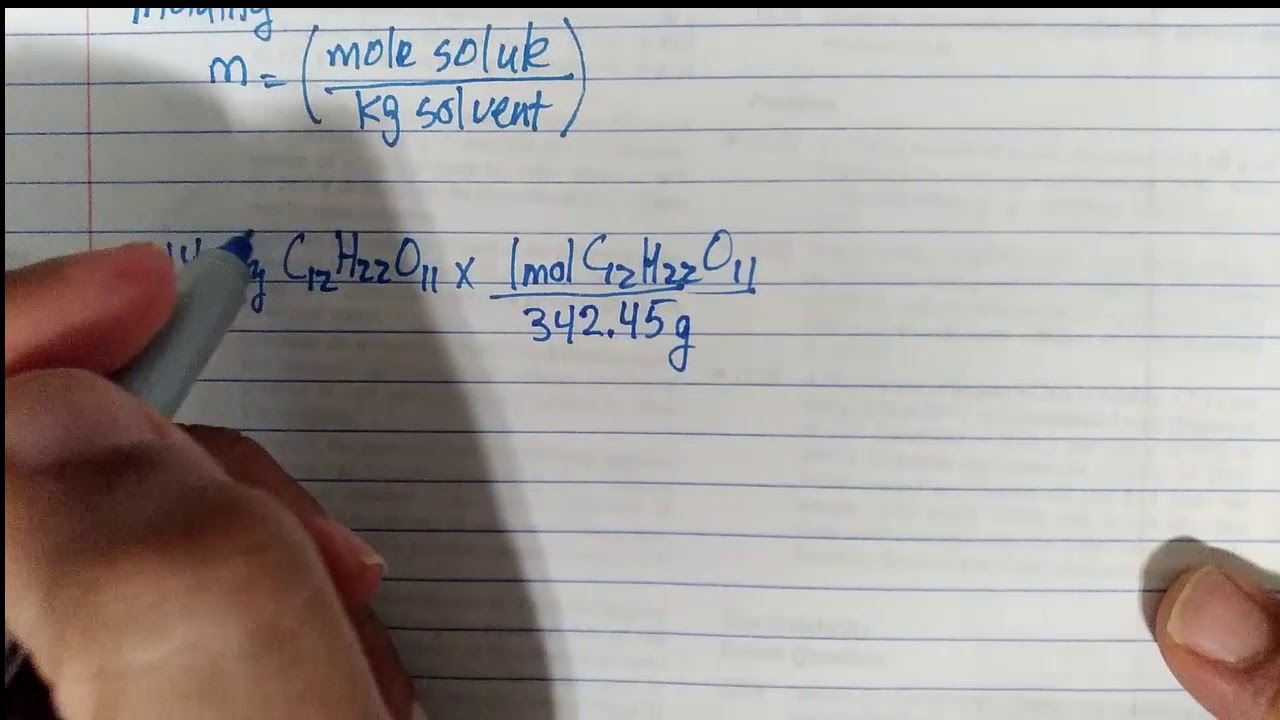 m = (mole solute
kg solvent)
g C₁₂H₂₂O₁₁ x 1mol C₁₂H₂₂O₁₁
342.45g